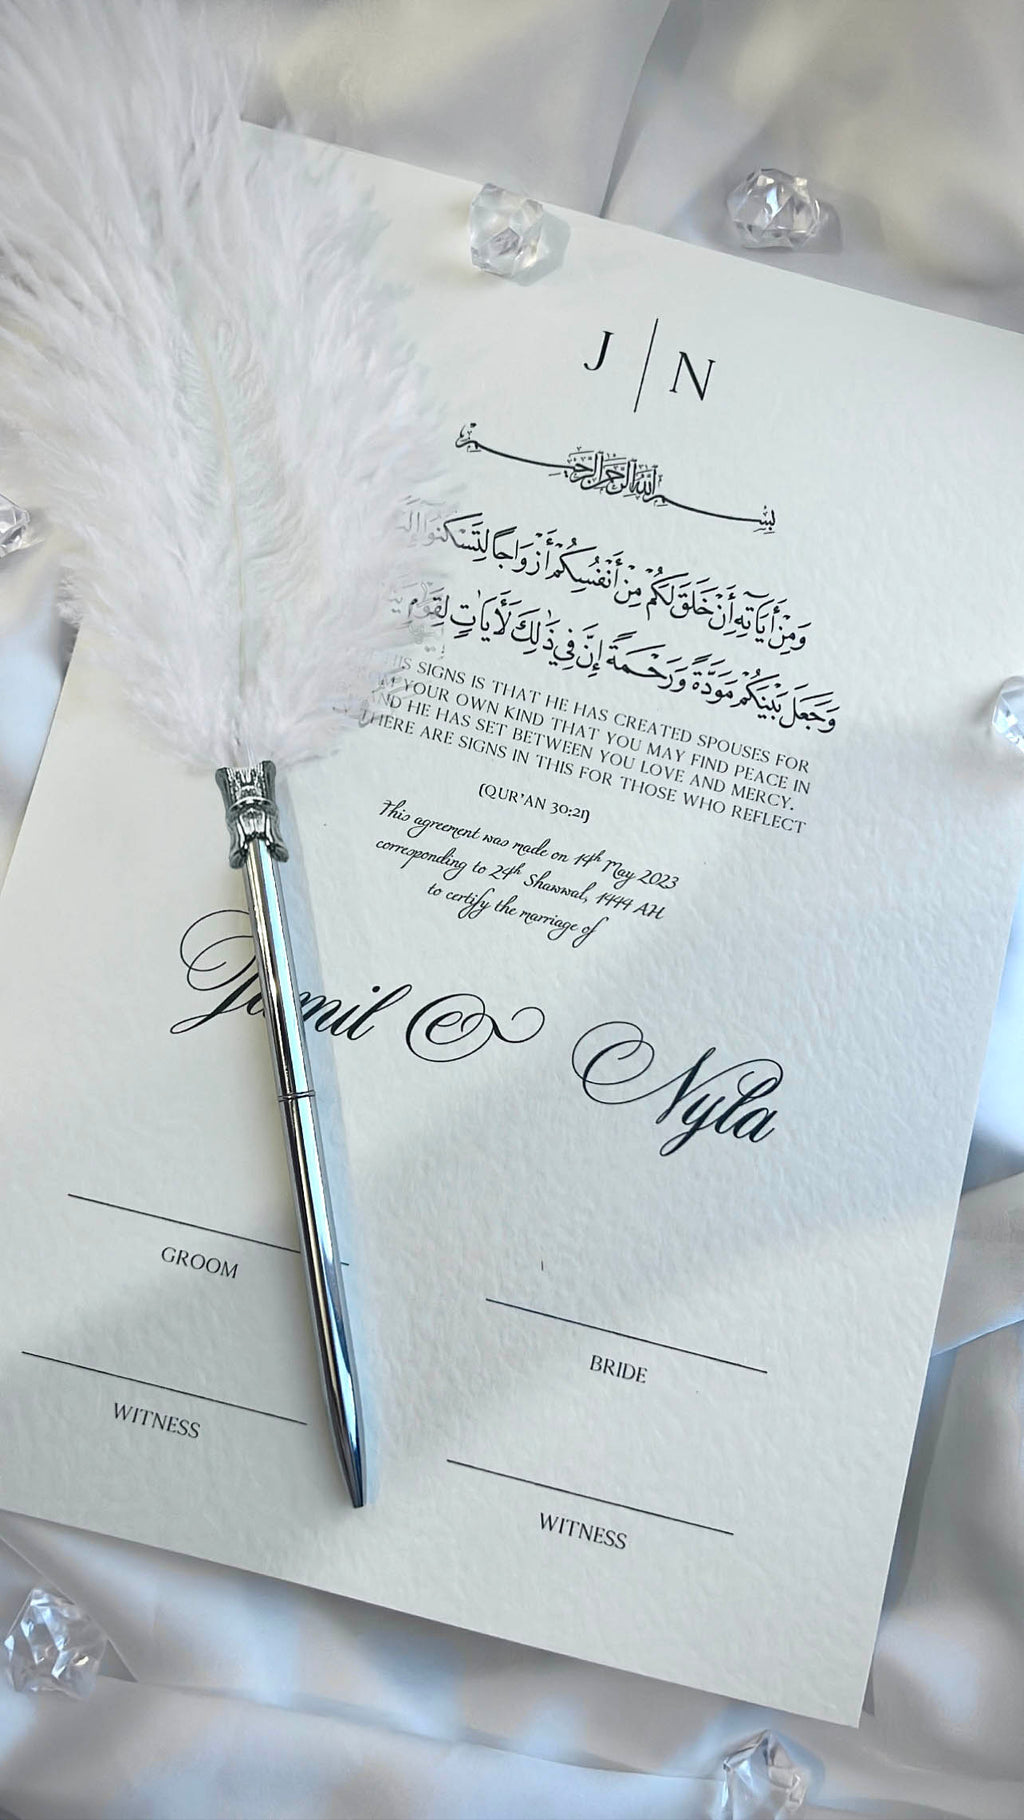 J | N
بِسْمِ اللهِ الرَّحْمٰنِ الرَّحِيْمِ
وَمِنْ أَيَاتِهِ أَنْ خَلَقَ لَكُمْ مِنْ أَنْفُسِكُمْ أَزْوَاجًا لِتَسْكُنُوا
وَجَعَلَ بَيْنَكُمْ مَوَدَّةً وَرَحْمَةً إِنَّ فِي ذَٰلِكَ لَأَيَاتٍ لِقَوْمٍ
SIGNS IS THAT HE HAS CREATED SPOUSES FOR
YOUR OWN KIND THAT YOU MAY FIND PEACE IN
AND HE HAS SET BETWEEN YOU LOVE AND MERCY.
THERE ARE SIGNS IN THIS FOR THOSE WHO REFLECT
(QUR'AN 30:21)
This agreement was made on 14th May 2023
corresponding to 24th Shawwal, 1444 AH
to certify the marriage of
Jamil & Nyla
GROOM
BRIDE
WITNESS
WITNESS